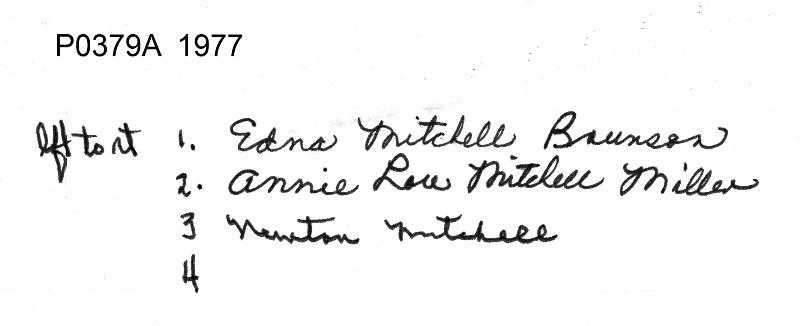 P0379A 1977
lft to rt 1. Edna Mitchell Brunson
2. Annie Lou Mitchell Miller
3 Newton Mitchell
4